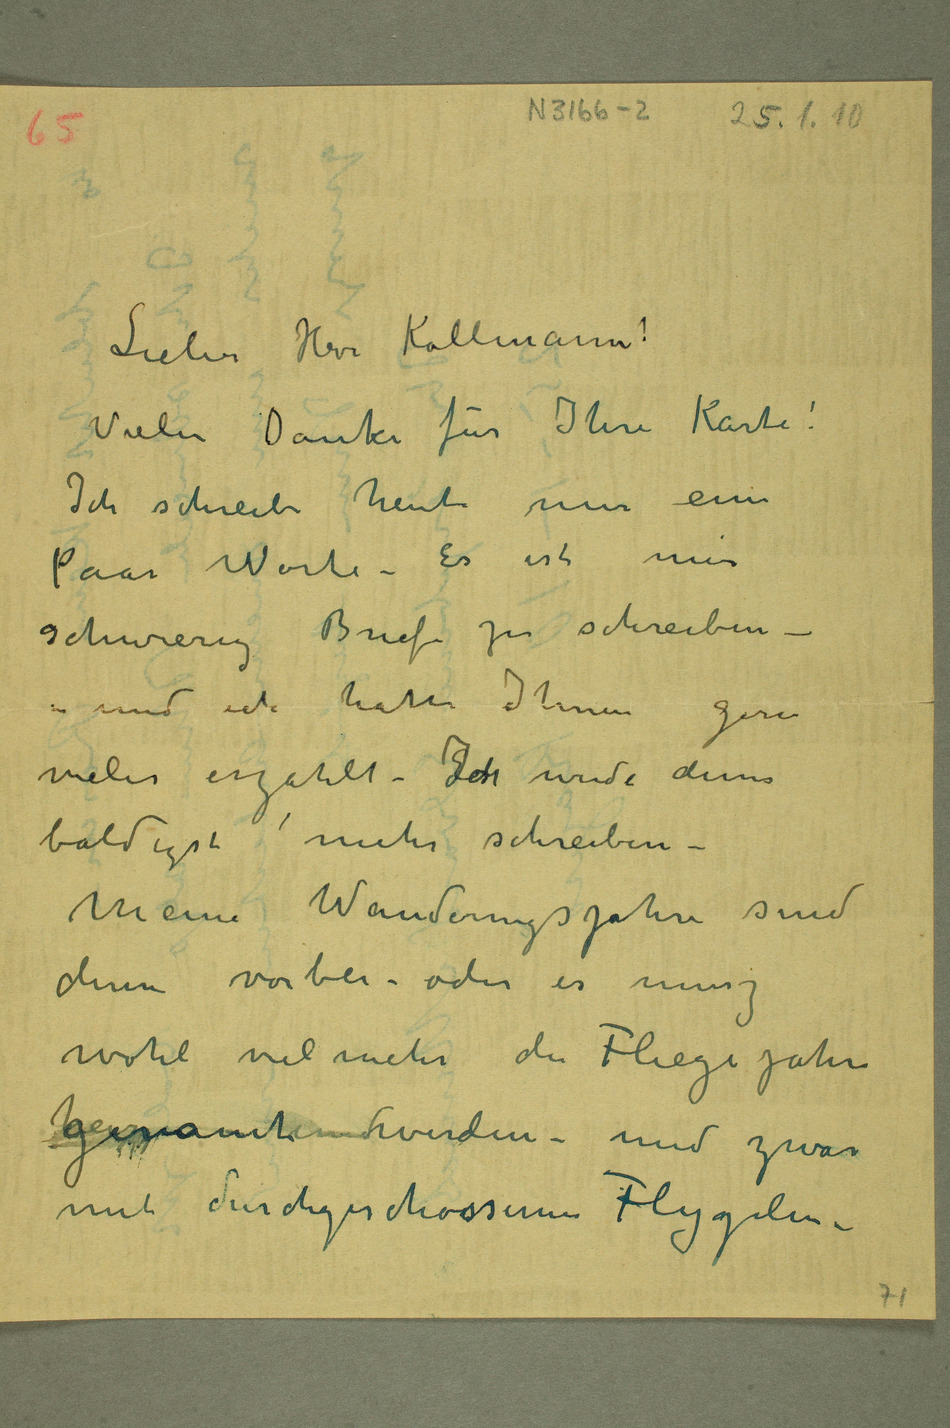 65
N3166-2
25.1.10
Lieber Herr Kollmann!
Vielen Danke für Ihre Karte!
Ich schreibe heute nur ein
Paar Worte – Es ist mir
schwierig Briefe zu schreiben –
– und ich hatte Ihnen gern
vieles erzahlt – Ich werde denn
baldigst mehr schreiben –
Meine Wanderungsjahre sind
denn vorbei – oder es musz
wohl vielmehr die Fliegejahre
genannt werden – und zwar
mit durchgeschossenen Flygelen –
71